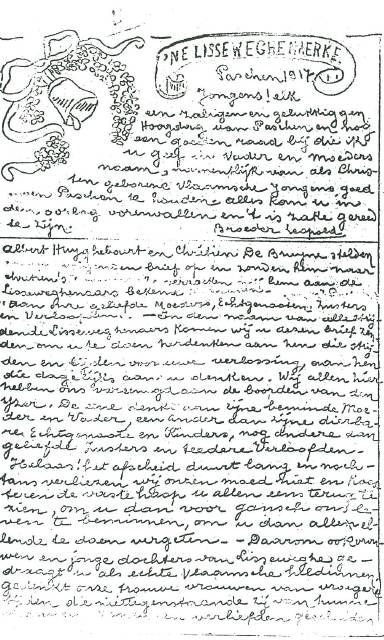 'NE LISSEWEGHENAERKE.
Paschen 1917
Jongens! elk
een zaligen en gelukkiggen
Hoogdag van Paschen en nog
een goeden raad bij die ik
u geef in Vader en moeders
naam, namentlijk van als Chris-
ten geboren Vlaamsche Jongens goed
Paschen te houden: alles kan u in
den oorlog voorenvallen en 't is zake gereed
te zijn.
Broeder Leopold
Albert Huyghebaert en Chrétien De Bruyne stelden
brief op en zonden hem naar
hem aan de
Lisseweghenaers bekend
Aan hre geliefde Moeders, Echtgenooten, Zusters
en Verloofden. - In den naam van alle strij-
dende Lisseweghenaers komen wij u dezen brief zen-
den om u te doen herdenken aan hen die strij-
den en lijden voor uwe verlossing, aan hen
die dagelijks aan u denken. Wij allen hier
hebben ons verzaemgd aan de boorden van den
Yser. De eene denkt aan zijne beminde Moe-
der en Vader, een ander aan zijne dierba-
re Echtgenoote en Kinders, nog andere aan
geliefde Zusters en teedere Verloofden.
Helaas! het afscheid duurt lang en noch-
tans verliezen wij onzen moed niet en koes-
teren de vaste hoop u allen eens terug te
zien, om u dan voor gansch ons le-
ven te beminnen, om u dan alle el-
lende te doen vergeten. - Daarom ook vrou-
wen en jonge dochters van Lisseweghe ge-
draagt u als echte Vlaamsche heldinnen,
gedenkt onze trouwe vrouwen van vroeger
tijden die niettegenstaande zij van hunne
en verliefden gescheiden